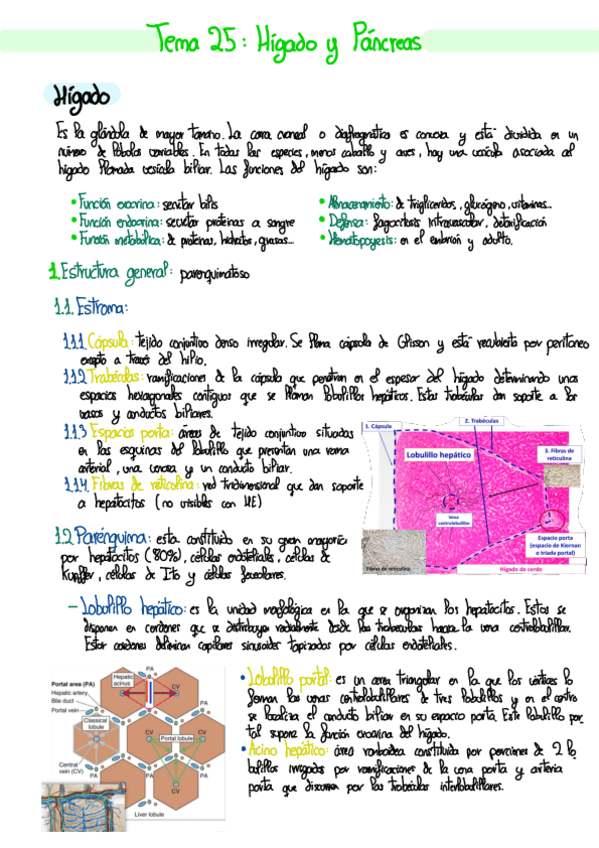 Tema 25: Hígado y Páncreas
Hígado
Es la glándula de mayor tamaño. La cara craneal o diafragmática es convexa y está dividida en un
número de lóbulos variables. En todas las especies, menos caballo y aves, hay una vesícula asociada al
hígado llamada vesícula biliar. Las funciones del hígado son:
• Función exocrina: secretar bilis
• Función endocrina: secretar proteínas a sangre
• Función metabólica: de proteínas, hidratos, grasas...
• Almacenamiento: de triglicéridos, glucógeno, vitaminas...
• Defensa: fagocitosis intravascular, detoxificación
• Hematopoyesis: en el embrión y adulto.
1. Estructura general: parenquimatoso
1.1. Estroma:
1.1.1 Cápsula: tejido conjuntivo denso irregular. Se llama cápsula de Glisson y está recubierta por peritoneo
excepto a través del hilio.
1.1.2 Trabéculas: ramificaciones de la cápsula que penetran en el espesor del hígado determinando unos
espacios hexagonales contiguos que se llaman lobulillos hepáticos. Estas trabéculas dan soporte a los
vasos y conductos biliares.
1.1.3 Espacios porta: áreas de tejido conjuntivo situadas
en las esquinas del lobulillo que presentan una rama
arterial, una venosa y un conducto biliar.
1.1.4 Fibras de reticulina: red tridimensional que dan soporte
a hepatocitos (no visibles con HE)
1. Cápsula
2. Trabéculas
Lobulillo hepático
3. Fibras de
reticulina
Vena
centrolobulillar
Espacio porta
(espacio de Kiernan
o tríada portal)
Fibras de reticulina
Hígado de cerdo
1.2. Parénquima: esta constituido en su gran mayoría
por hepatocitos (80%), células endoteliales, células de
Kupffer, células de Ito y células fovelares.
– Lobulillo hepático: es la unidad morfológica en la que se organizan los hepatocitos. Estos se
disponen en cordones que se distribuyen radialmente desde las trabéculas hacia la vena centrolobulillar.
Estos cordones delimitan capilares sinusoides tapizados por células endoteliales.
Portal area (PA)
Hepatic artery
Bile duct
Portal vein
Classical
lobule
Central
vein (CV)
Hepatic
acinus
PA
CV
PA
CV
Portal lobule
CV
PA
PA
CV
PA
CV
Liver lobule
• Lobulillo portal: es un area triangular en la que los vértices lo
forman las venas centrolobulillares de tres lobulillos y en el centro
se localiza el conducto biliar en su espacio porta. Este lobulillo por
tal supone la función exocrina del hígado.
• Acino hepático: área romboidea constituida por porciones de 2 lo
bulillos irrigados por ramificaciones de la vena porta y arteria
porta que discurren por las trabéculas interlobulillares.